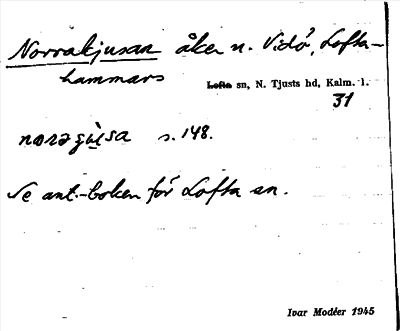 Norrakjusan åker n. Vidö, Lofta-
hammars
Lofta sn, N. Tjusts hd, Kalm. l.
31
norəgùsa s. 148.
Se ant.-boken för Lofta sn.
Ivar Modéer 1945